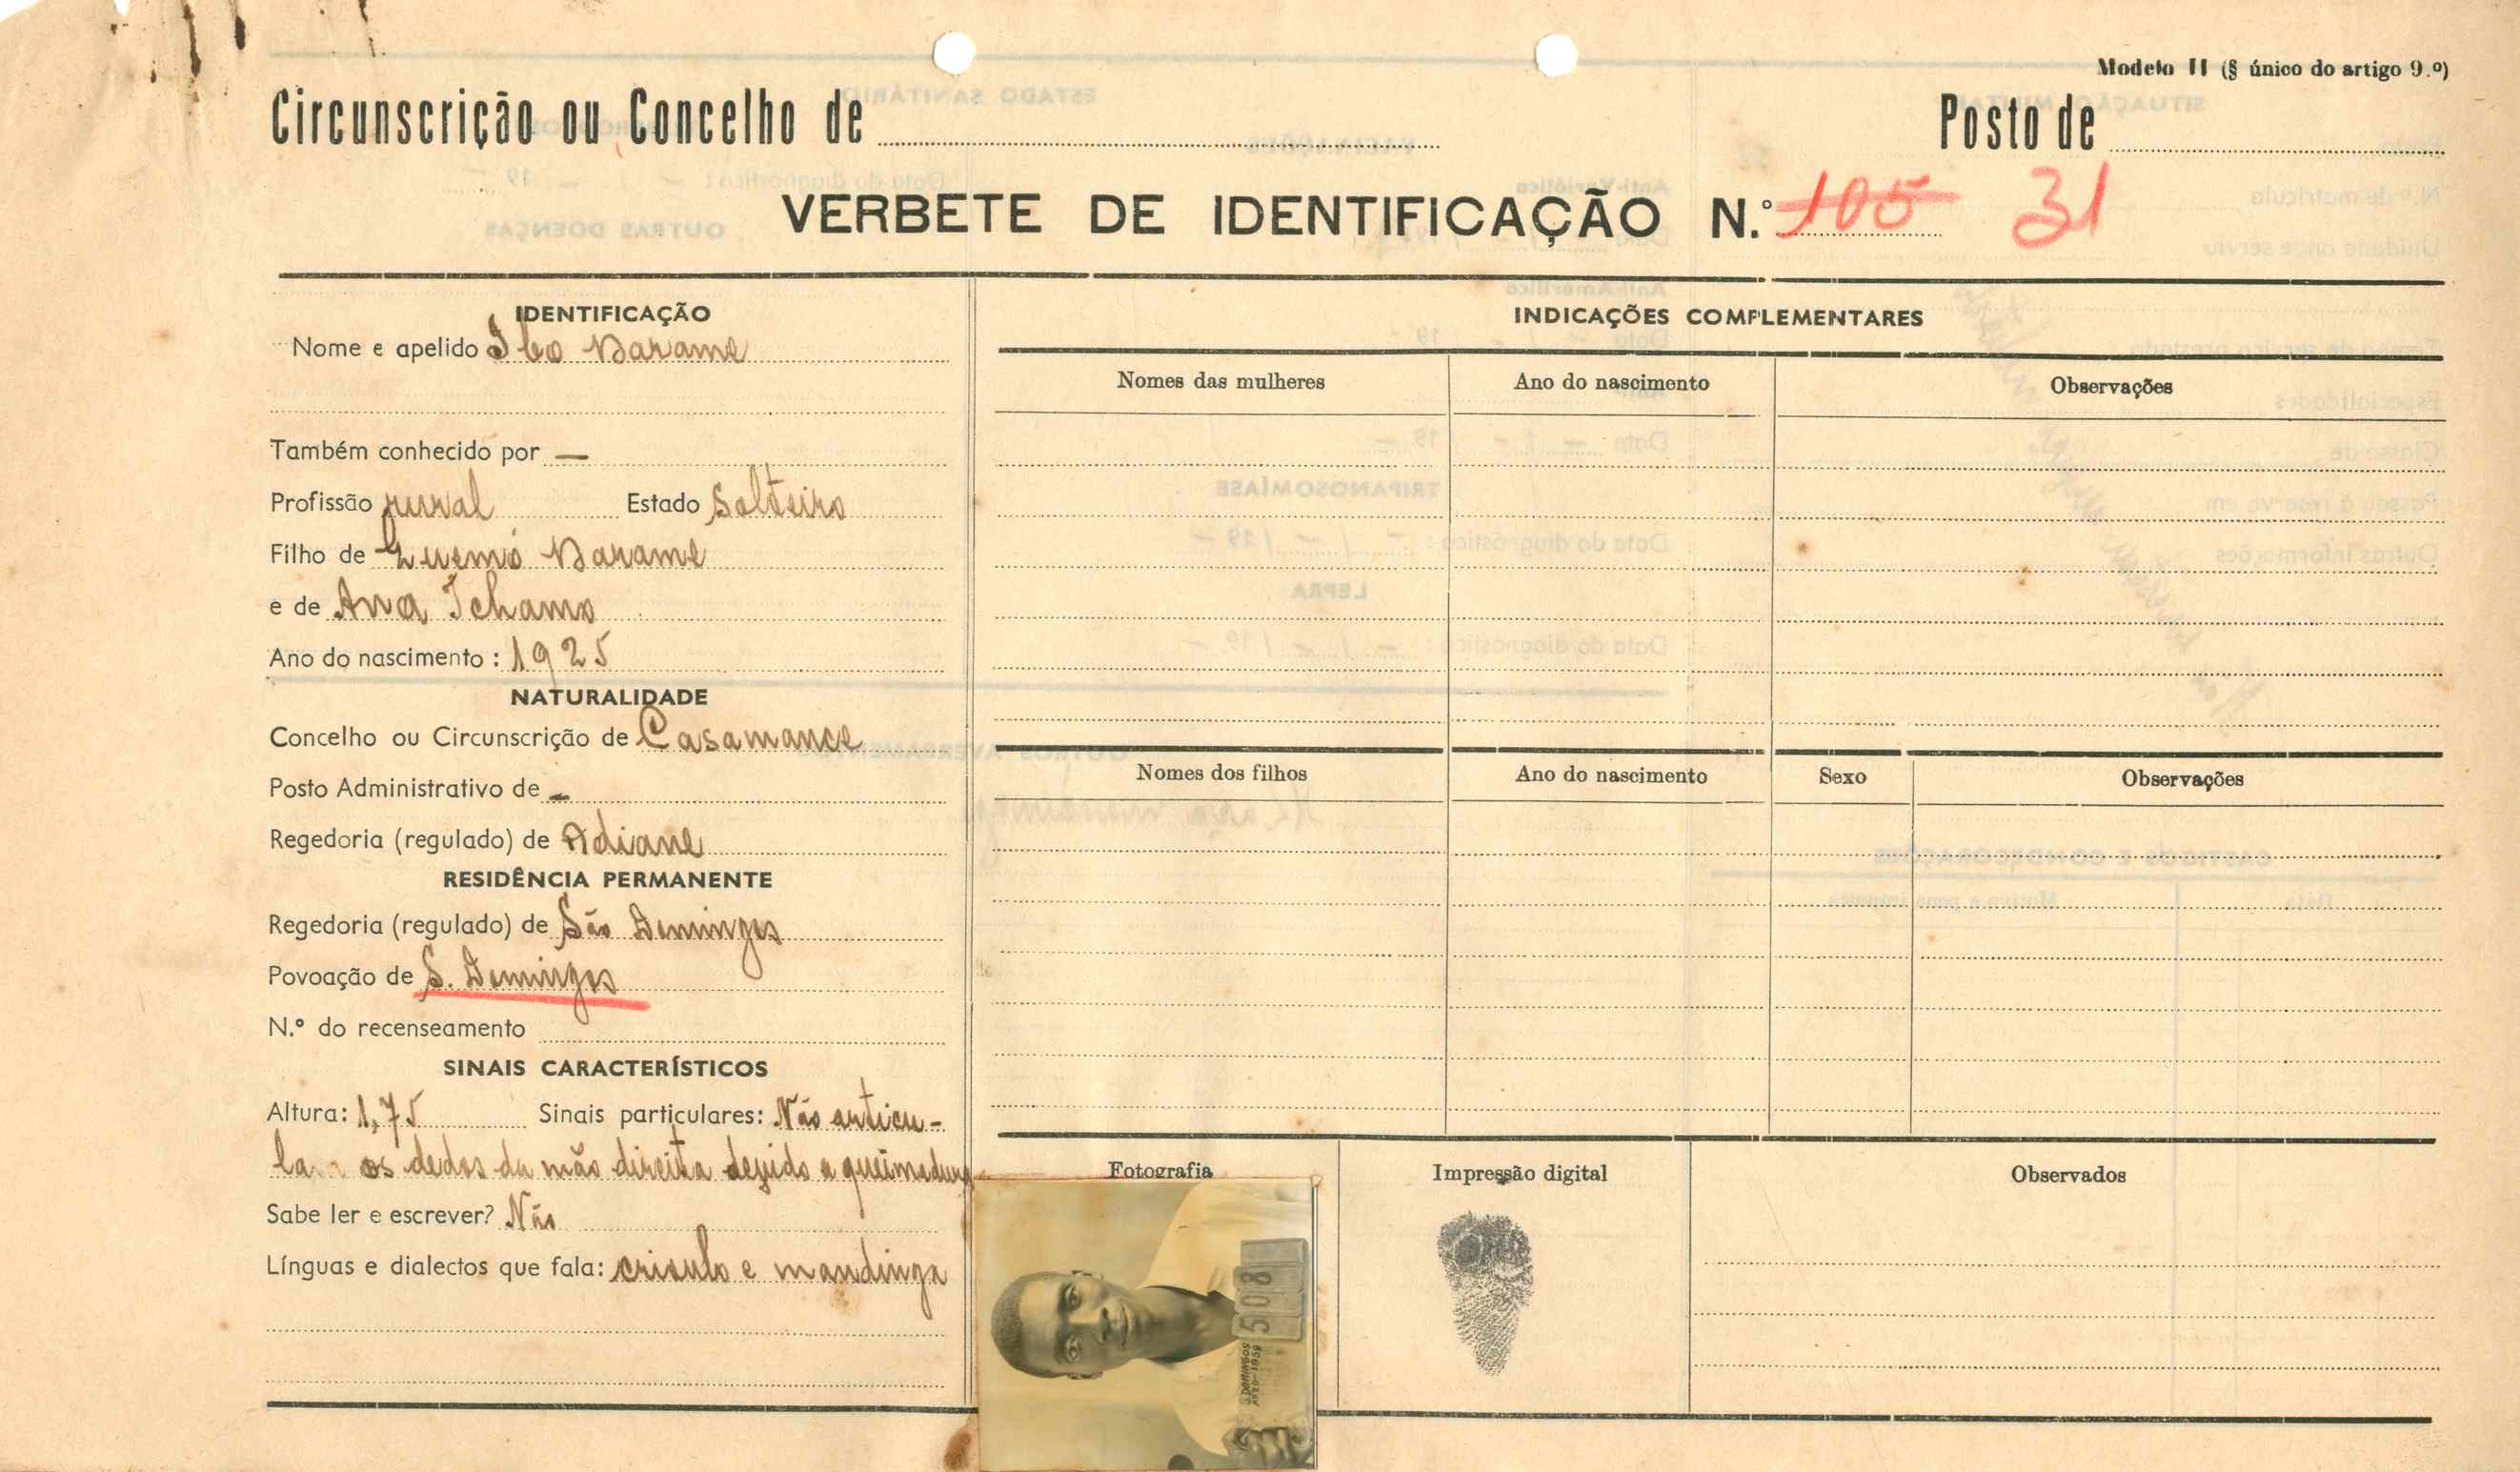 Modelo II (§ único do artigo 9.º)
Circunscrição ou Concelho de
Posto de
VERBETE DE IDENTIFICAÇÃO N.º 105 31
IDENTIFICAÇÃO
Nome e apelido Ibo Darame
Também conhecido por —
Profissão rural Estado Solteiro
Filho de Quemó Darame
e de Ana Tchamo
Ano do nascimento: 1925
NATURALIDADE
Concelho ou Circunscrição de Casamance
Posto Administrativo de —
Regedoria (regulado) de Adiane
RESIDÊNCIA PERMANENTE
Regedoria (regulado) de São Domingos
Povoação de S. Domingos
N.º do recenseamento
SINAIS CARACTERÍSTICOS
Altura: 1,75 Sinais particulares: Não articu-
la os dedos da mão direita devido a queimadura
Sabe ler e escrever? Não
Línguas e dialectos que fala: crioulo e mandinga
INDICAÇÕES COMPLEMENTARES
Nomes das mulheres Ano do nascimento Observações
Nomes dos filhos Ano do nascimento Sexo Observações
Fotografia Impressão digital Observados
508
S. DOMINGOS